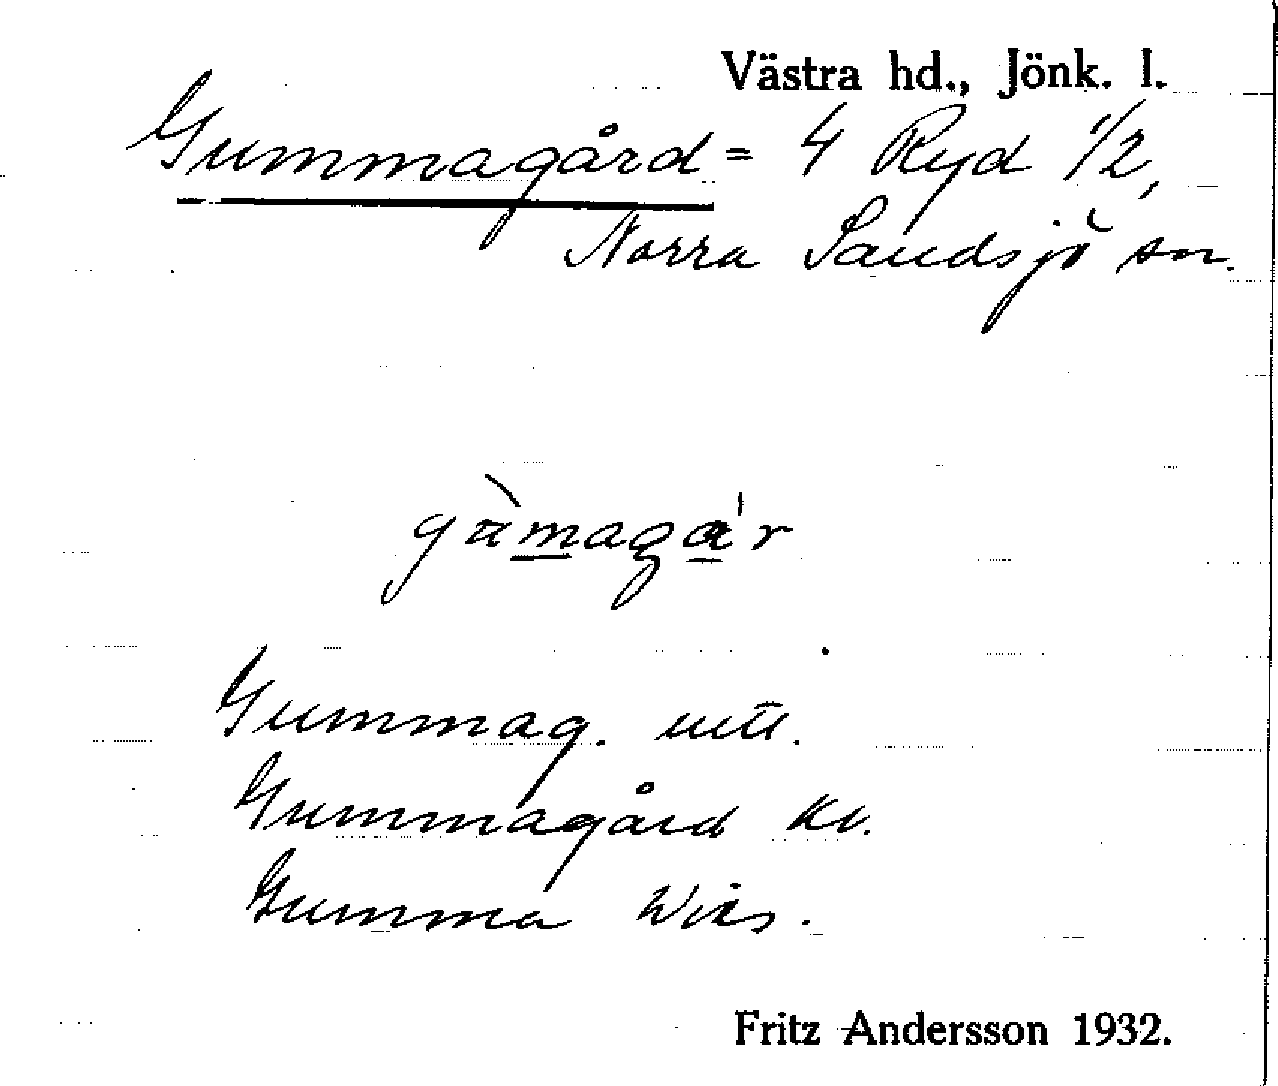 Västra hd., Jönk. l.
Gummagård = 4 Ryd 1/2,
Norra Sandsjö sn.
Gummag.
Gummagård
Gumma Wies.
Fritz Andersson 1932.